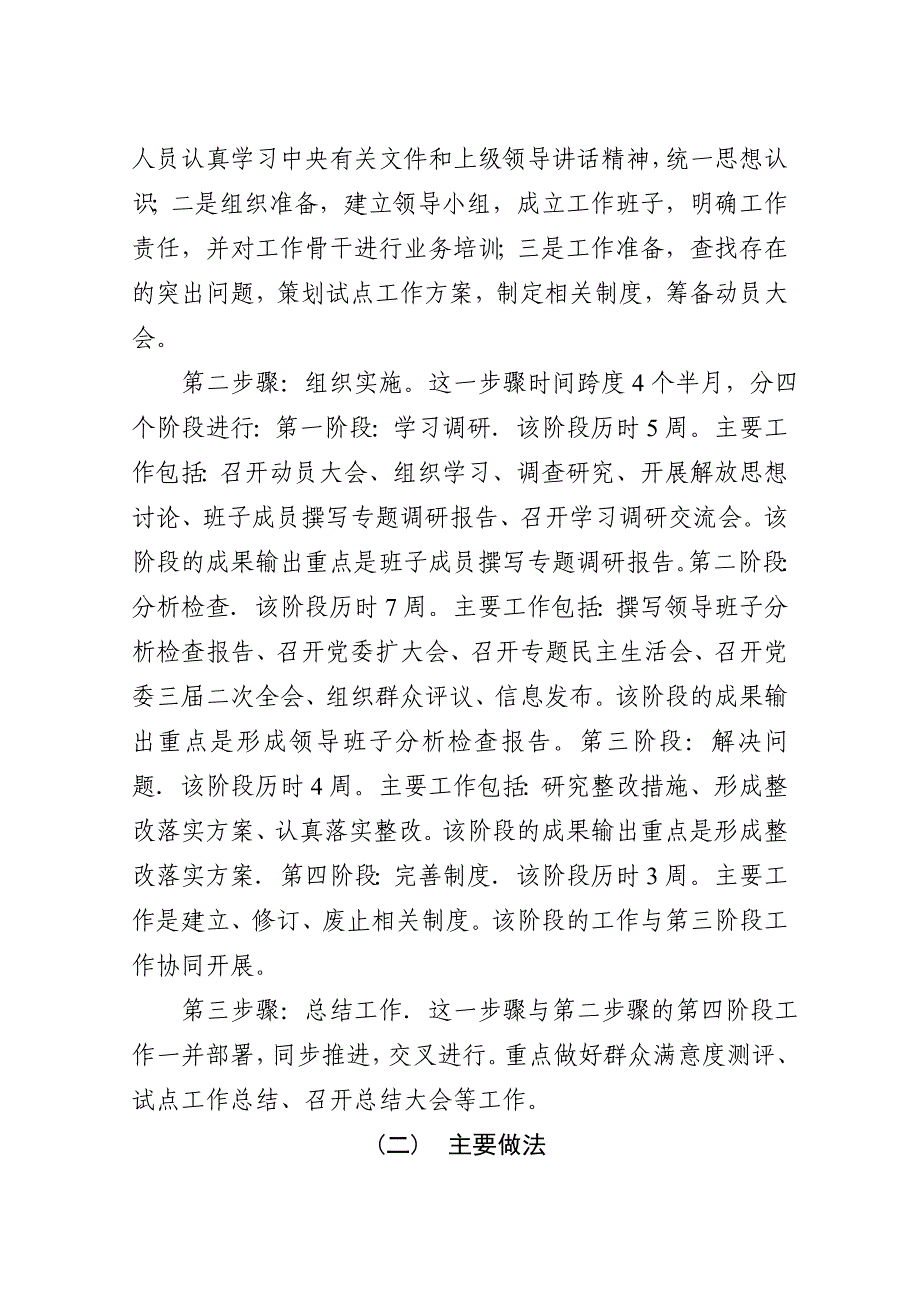 人员认真学习中央有关文件和上级领导讲话精神,统一思想认
识; 二是组织准备，建立领导小组，成立工作班子，明确工作
责任，并对工作骨干进行业务培训; 三是工作准备，查找存在
的突出问题，策划试点工作方案，制定相关制度，筹备动员大
会。
第二步骤：组织实施。这一步骤时间跨度 4 个半月，分四
个阶段进行: 第一阶段: 学习调研．该阶段历时 5 周。主要工
作包括: 召开动员大会、组织学习、调查研究、开展解放思想
讨论、班子成员撰写专题调研报告、召开学习调研交流会。该
阶段的成果输出重点是班子成员撰写专题调研报告。第二阶段:
分析检查．该阶段历时 7 周。主要工作包括: 撰写领导班子分
析检查报告、召开党委扩大会、召开专题民主生活会、召开党
委三届二次全会、组织群众评议、信息发布。该阶段的成果输
出重点是形成领导班子分析检查报告。第三阶段：解决问
题．该阶段历时 4 周。主要工作包括: 研究整改措施、形成整
改落实方案、认真落实整改。该阶段的成果输出重点是形成整
改落实方案．第四阶段: 完善制度．该阶段历时 3 周。主要工
作是建立、修订、废止相关制度。该阶段的工作与第三阶段工
作协同开展。
第三步骤：总结工作．这一步骤与第二步骤的第四阶段工
作一并部署,同步推进,交叉进行。重点做好群众满意度测评、
试点工作总结、召开总结大会等工作。
(二) 主要做法